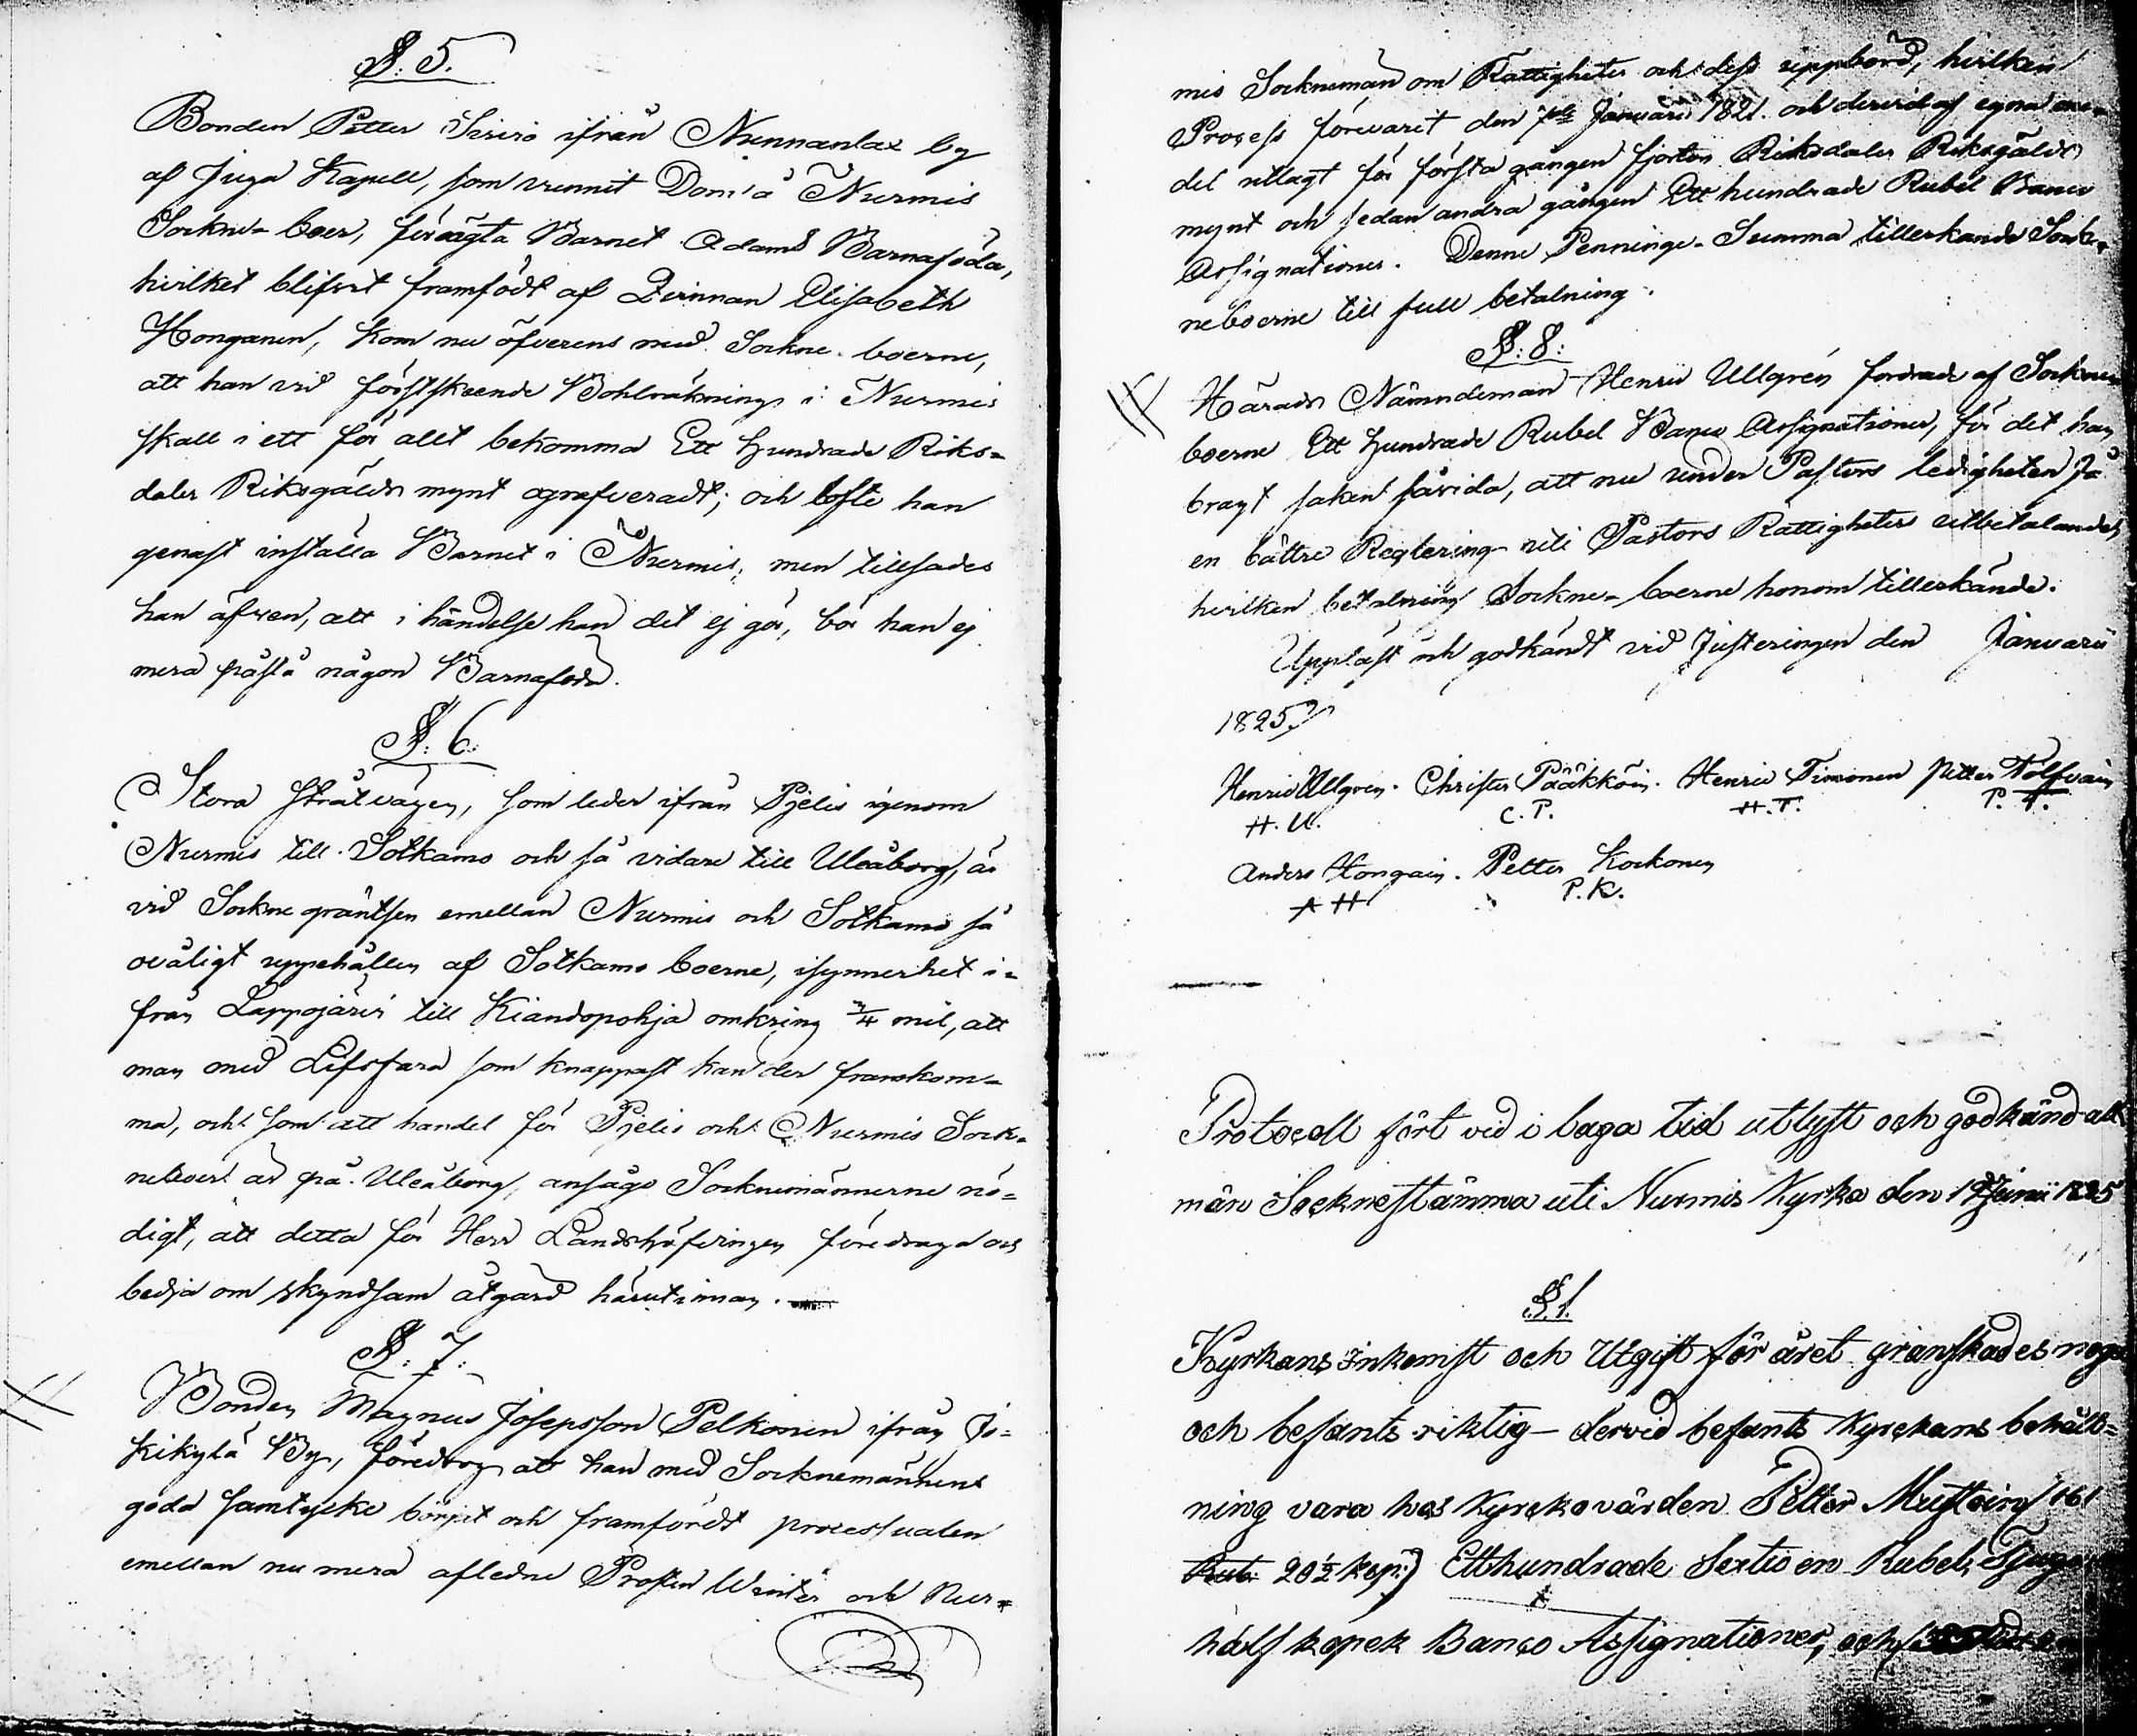 §: 5.
Bonden Petter Sririö ifrån Nunnanlax by
af Juga Kapell, som vunnit Dom å Nurmis
Sockne-boer, för oägta Barnet Adams Barnaföda,
hvilket blifvit framfödt af Qvinnan Elisabeth
Honganen, kom nu öfverens med Sockne-boerne,
att han vid förstskeende Bohlräkning i Nurmis
skall i ett för allt bekomma Ett hundrade Riks=
daler Riksgälds mynt ografveradt; och lofte han
genast inställa Barnet i Nurmis; men tillsades
han äfwen, att i händelse han det ej gör, bör han ej
mera påstå någon Barnaföda.
§: 6.
Stora Stråtvägen, som leder ifrån Pjelis igenom
Nurmis till Sotkamo och så vidare till Uleåborg, är
vid Sockne gräntsen emellan Nurmis och Sotkamo så
ovåligt uppehållen af Sotkamo boerne, isynnerhet i=
från Lappojärvi till Kiandopohja omkring 3/4 mil, att
man med Lifsfara som knappast kan der framkom=
ma, och som att handel för Pjelis och Nurmis Sock=
neboer är på Uleåborg, ansågo Socknemännerne nö=
digt, att detta för Herr Landshöfdingen föredraga och
bedja om skyndsam åtgärd härutinnan.
§: 7:
Bonden Magnus Josepsson Pelkonen ifrån Jo=
kikylä By, föredrog att han med Socknemännens
goda samtycke börjat och framfördt processualen
emellan nu mera afledne Prosten Winter och Nur=
mis Socknemän om Rättigheter och dess uppbörd, hvilken
Process förevarit den 7de Januarii 1821. och dervid af egna me=
del utlagt för första gången fjorton Riksdaler Riksgälds
mynt och sedan andra gången Ett hundrade Rubel Banco
Assignationer. Denne Penninge-Summa tillerkände Sock=
neboerne till full betalning.
§: 8:
Härads Nämndeman Henric Ullgrén fordrade af Sockne
boerne Ett hundrade Rubel Banco Assignationer, för det han
bragt saken såvida, att nu under Pastors ledigheten få
en bättre Reglering uti Pastors Rättigheters utbetalande,
hvilken betalning Sockne-boerne honom tillerkände.
Uppläst och godkändt vid Justeringen den Januarii
1825.
Henric Ullgren. Christer Pääkköin. Henric Timonen Petter Tolfvain
H. U. C. P. H. T. P. T.
Anders Hongain. Petter Korkonen
A H P. K.
Protocoll fört vid i laga tid utlyst och godkänd all
män Socknestämma uti Nurmis Kyrka den 19 Junii 1825
§. 1.
Kyrkans Inkomst och Utgift för året granskades noga
och befants riktig – dervid befants Kyrckans behåll=
ning vara hos Kyrckovärden Petter Mustoin 161
Rub: 20 1/2 kop:) Etthundrade Sextio en Rubel, Tjugo
half kopek Banco Assignationer, och